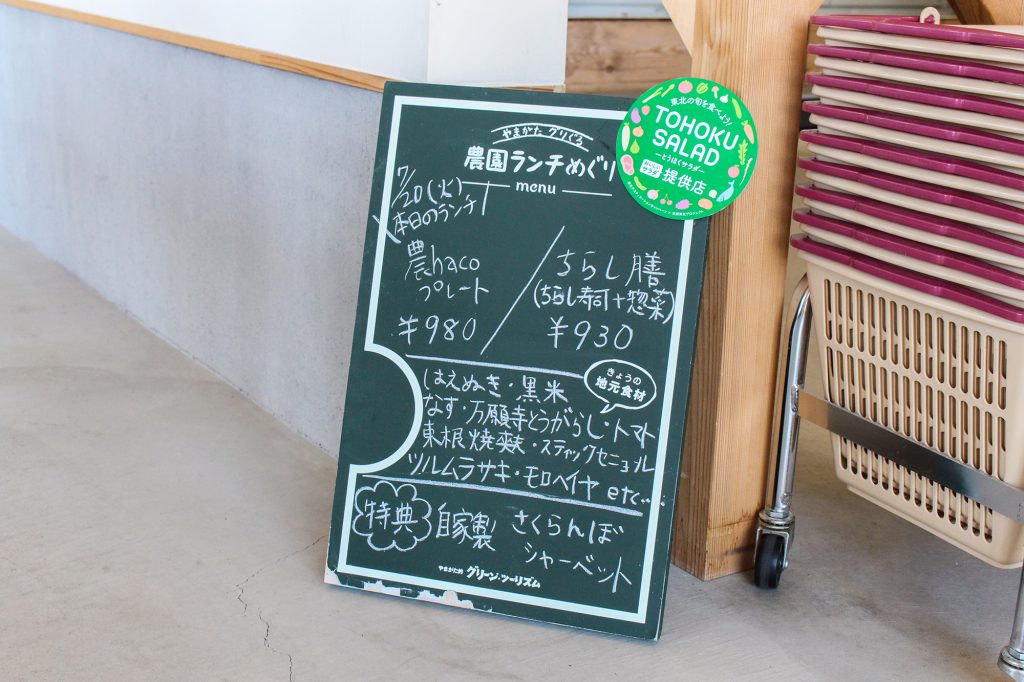 やまがた グリぐる
農園ランチめぐり
menu
7/20(火)
本日のランチ
農haco
プレート
¥980
ちらし膳
(ちらし寿司+惣菜)
¥930
きょうの
地元食材
はえぬき・黒米
なす・万願寺とうがらし・トマト
東根焼麩・スティックセニョル
ツルムラサキ・モロヘイヤ etc…
特典
自家製 さくらんぼ
シャーベット
やまがた的 グリーン・ツーリズム
東北の旬を食べよう!
TOHOKU
SALAD
―とうほくサラダ―
おいしい
サラダ
提供店